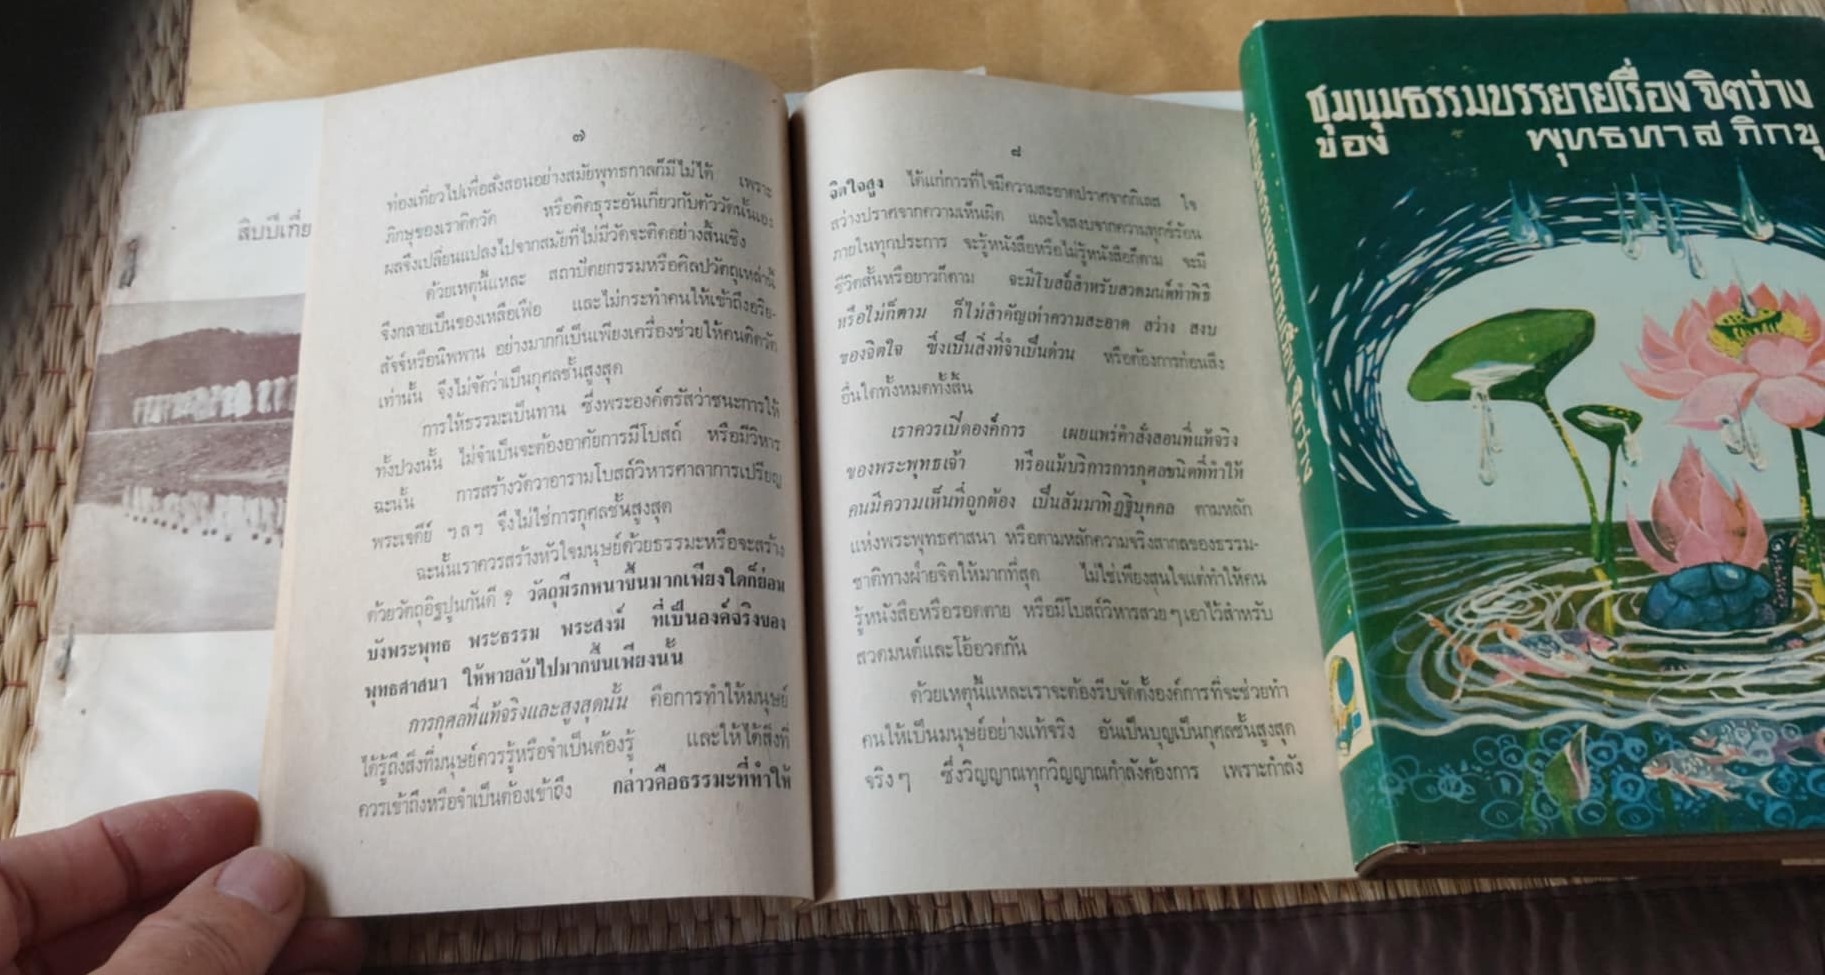 สิบปีเกี่ย
๗
ท่องเที่ยวไปเพื่อสั่งสอนอย่างสมัยพุทธกาลก็มีไม่ได้ เพราะ
ภิกษุของเราติดวัด หรือติดธุระอันเกี่ยวกับตัววัดนั่นเอง
ผลจึงเปลี่ยนแปลงไปจากสมัยที่ไม่มีวัดจะติดอย่างสิ้นเชิง
ด้วยเหตุนี้แหละ สถาปัตยกรรมหรือศิลปวัตถุเหล่านี้
จึงกลายเป็นของเหลือเฟือ และไม่กระทำคนให้เข้าถึงอริย-
สัจจ์หรือนิพพาน อย่างมากก็เป็นเพียงเครื่องช่วยให้คนติดวัด
เท่านั้น จึงไม่จัดว่าเป็นกุศลชั้นสูงสุด
การให้ธรรมะเป็นทาน ซึ่งพระองค์ตรัสว่าชนะการให้
ทั้งปวงนั้น ไม่จำเป็นจะต้องอาศัยการมีโบสถ์ หรือมีวิหาร
ฉะนั้น การสร้างวัดวาอารามโบสถ์วิหารศาลาการเปรียญ
พระเจดีย์ ฯลฯ จึงไม่ใช่การกุศลชั้นสูงสุด
ฉะนั้นเราควรสร้างหัวใจมนุษย์ด้วยธรรมะหรือจะสร้าง
ด้วยวัตถุอิฐปูนกันดี ? วัตถุมีรกหนาขึ้นมากเพียงใดก็ย่อม
บังพระพุทธ พระธรรม พระสงฆ์ ที่เป็นองค์จริงของ
พุทธศาสนา ให้หายลับไปมากขึ้นเพียงนั้น
การกุศลที่แท้จริงและสูงสุดนั้น คือการทำให้มนุษย์
ได้รู้ถึงสิ่งที่มนุษย์ควรรู้หรือจำเป็นต้องรู้ และให้ได้สิ่งที่
ควรเข้าถึงหรือจำเป็นต้องเข้าถึง กล่าวคือธรรมะที่ทำให้
๘
จิตใจสูง ได้แก่การที่ใจมีความสะอาดปราศจากกิเลส ใจ
สว่างปราศจากความเห็นผิด และใจสงบจากความทุกข์ร้อน
ภายในทุกประการ จะรู้หนังสือหรือไม่รู้หนังสือก็ตาม จะมี
ชีวิตสั้นหรือยาวก็ตาม จะมีโบสถ์สำหรับสวดมนต์ทำพิธี
หรือไม่ก็ตาม ก็ไม่สำคัญเท่าความสะอาด สว่าง สงบ
ของจิตใจ ซึ่งเป็นสิ่งที่จำเป็นด่วน หรือต้องการก่อนสิ่ง
อื่นใดทั้งหมดทั้งสิ้น
เราควรเปิดองค์การ เผยแพร่คำสั่งสอนที่แท้จริง
ของพระพุทธเจ้า หรือแม้บริการการกุศลชนิดที่ทำให้
คนมีความเห็นที่ถูกต้อง เป็นสัมมาทิฏฐิบุคคล ตามหลัก
แห่งพระพุทธศาสนา หรือตามหลักความจริงสากลของธรรม-
ชาติทางฝ่ายจิตให้มากที่สุด ไม่ใช่เพียงสนใจแต่ทำให้คน
รู้หนังสือหรือรอดตาย หรือมีโบสถ์วิหารสวยๆ เอาไว้สำหรับ
สวดมนต์และโอ้อวดกัน
ด้วยเหตุนี้แหละเราจะต้องรีบจัดตั้งองค์การที่จะช่วยทำ
คนให้เป็นมนุษย์อย่างแท้จริง อันเป็นบุญเป็นกุศลชั้นสูงสุด
จริงๆ ซึ่งวิญญาณทุกวิญญาณกำลังต้องการ เพราะกำลัง
ชุมนุมธรรมบรรยายเรื่องจิตว่าง
ของ พุทธทาส ภิกขุ